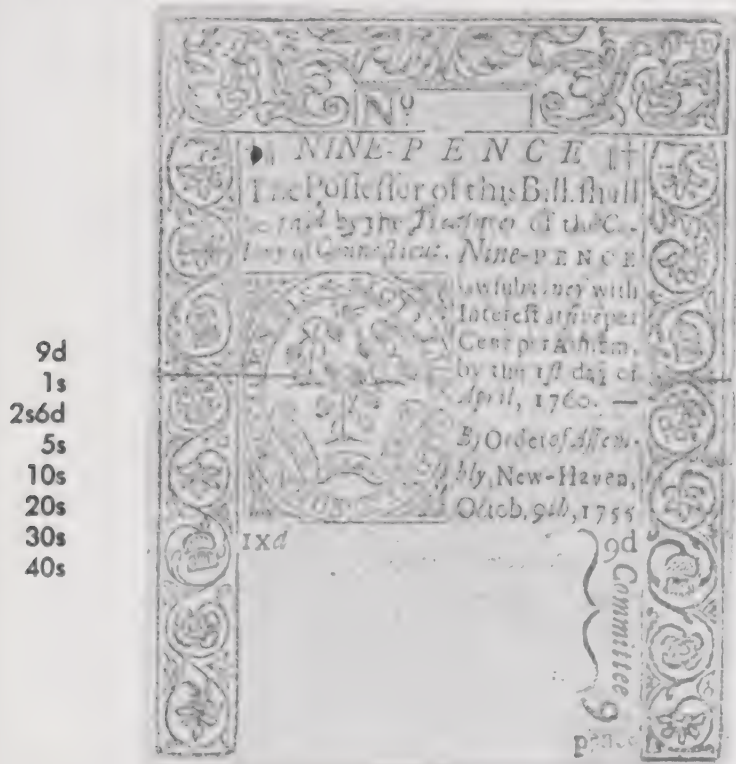 9d
1s
2s6d
5s
10s
20s
30s
40s
No
NINE-PENCE
The Possessor of this Bill shall
by the Treasurer of the Co-
lony of Connecticut, Nine-PENCE
lawful money with
Interest at five per
Cent per Annum,
by the 1st day of
April, 1760. —
By Order of Assem-
bly, New-Haven,
Octob. 9th, 1755
IXd
9d
Committee
9
pence